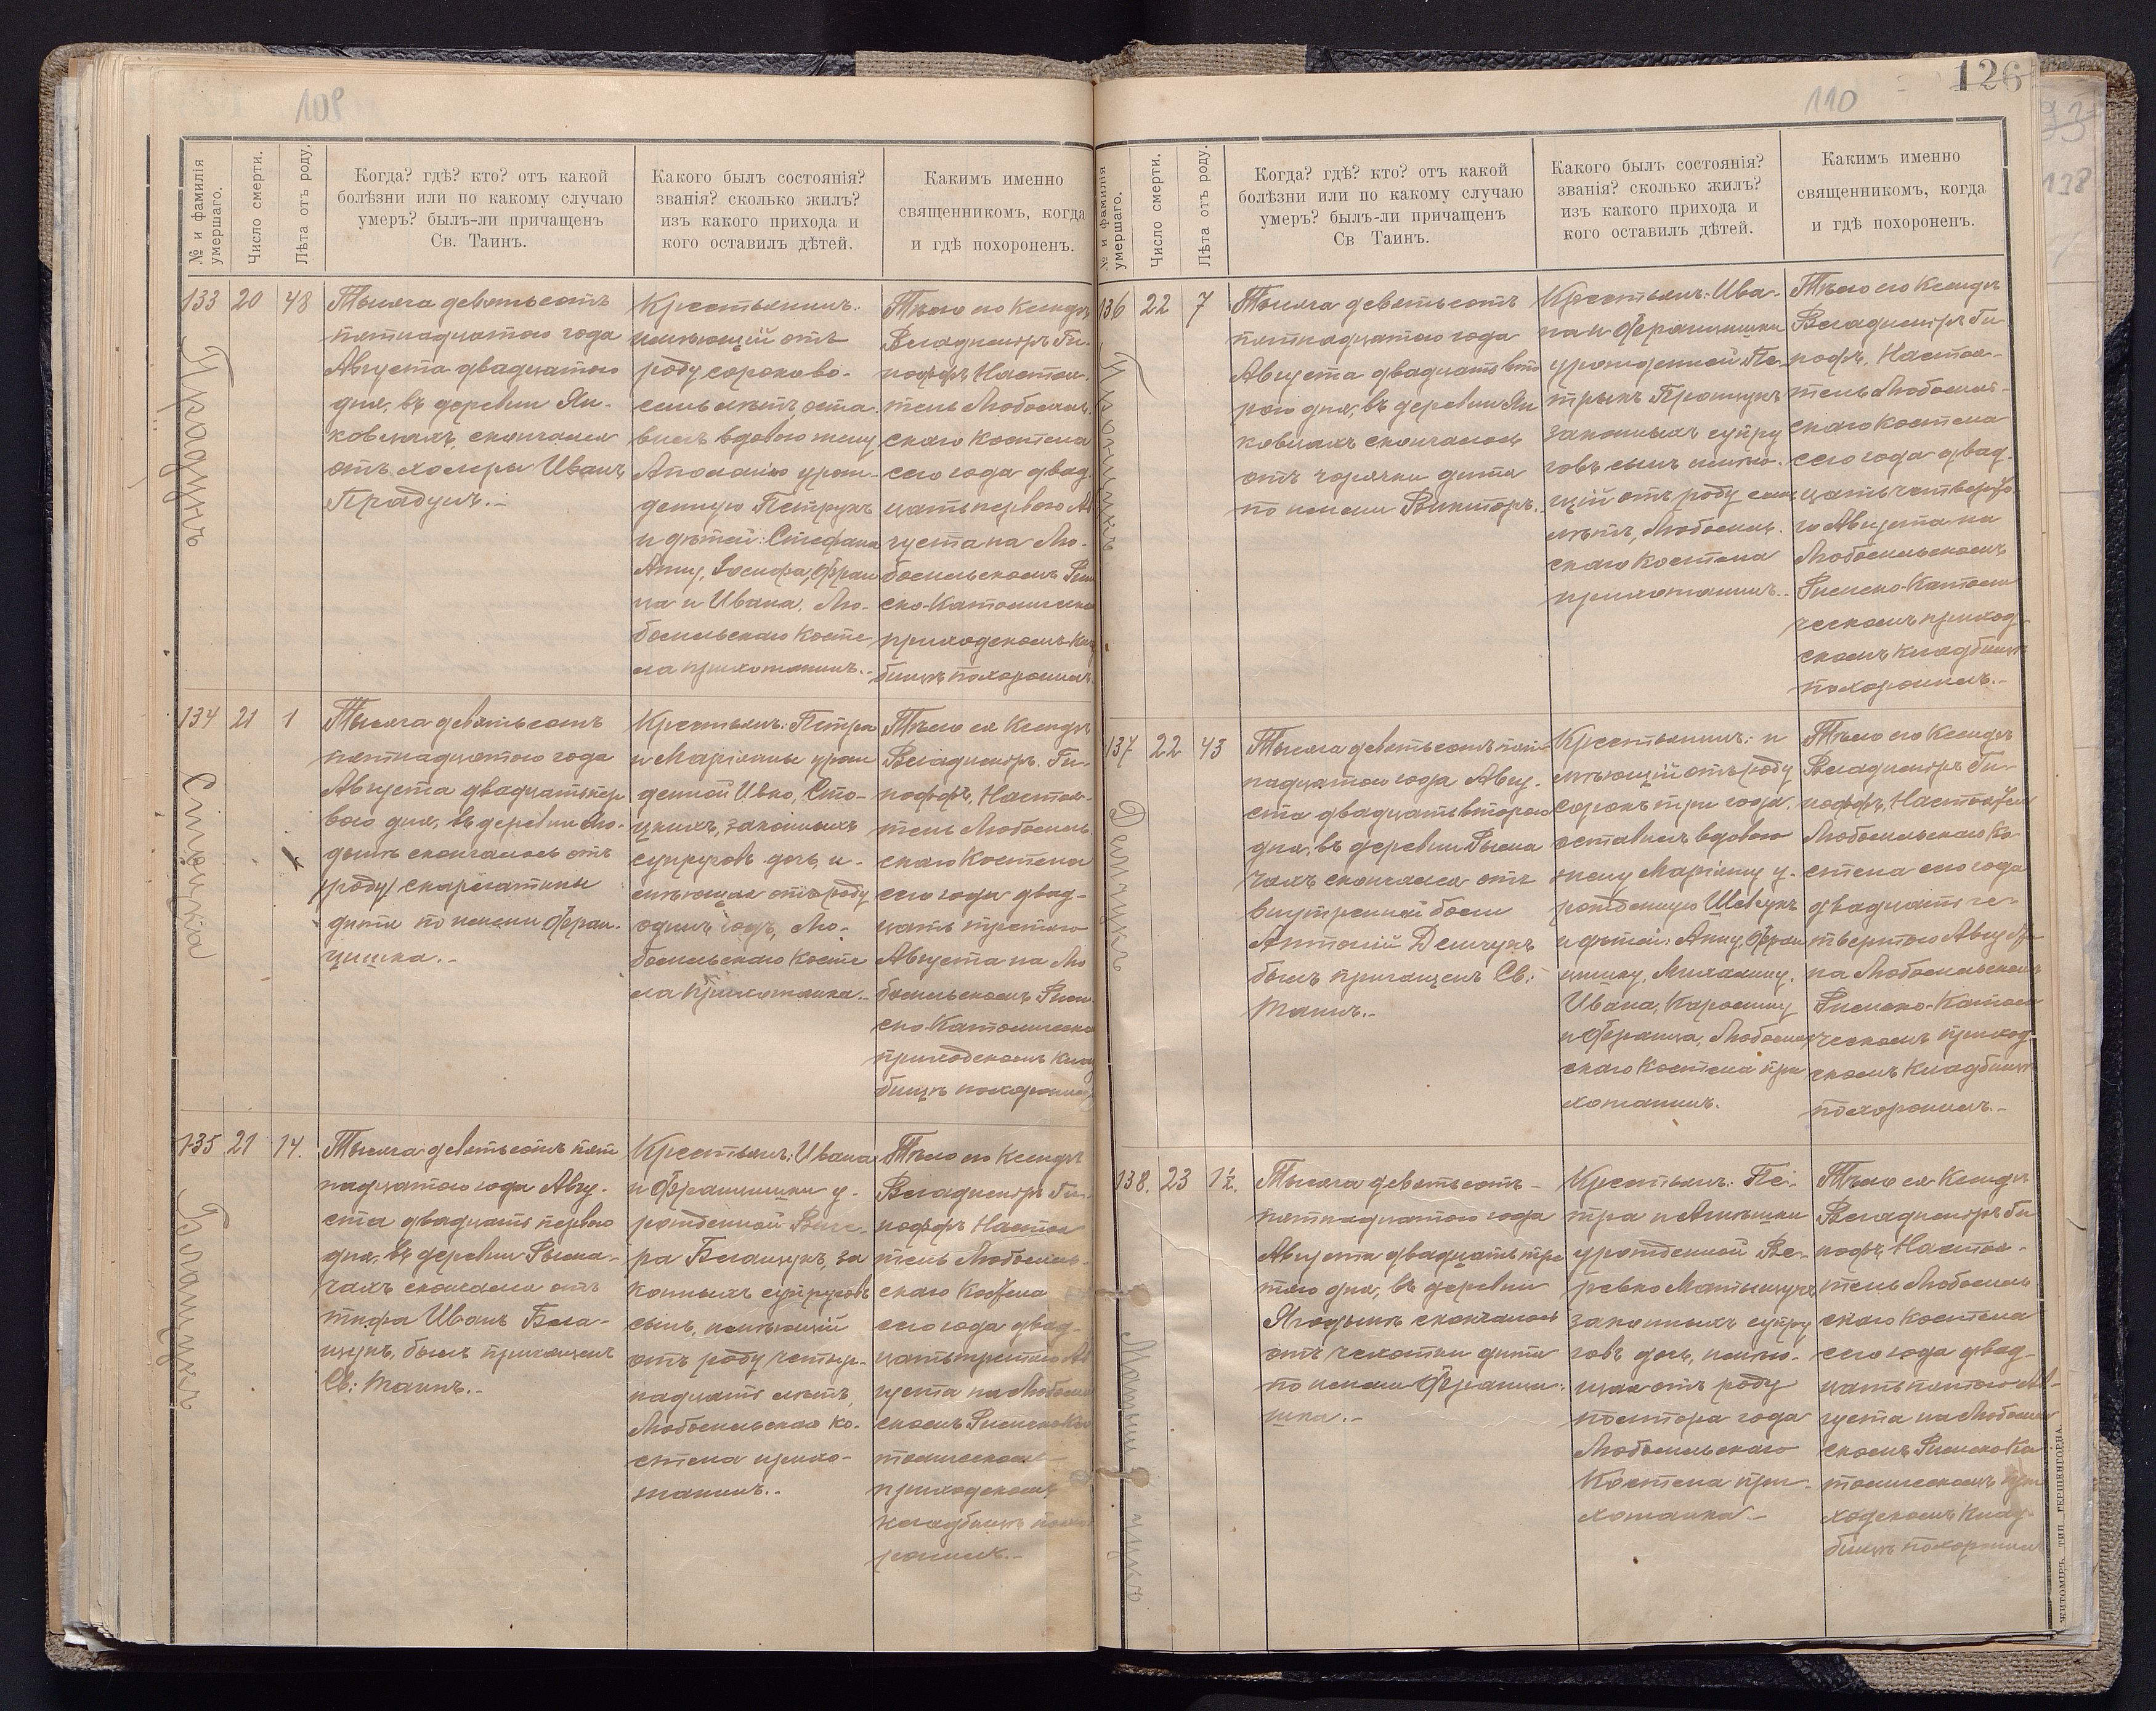 108
№ и фамилія умершаго.
Число смерти.
Лѣта отъ роду.
Когда? гдѣ? кто? отъ какой
болѣзни или по какому случаю
умеръ? былъ-ли причащенъ
Св. Таинъ.
Какого былъ состоянія?
званія? сколько жилъ?
изъ какого прихода и
кого оставилъ дѣтей.
Какимъ именно
священникомъ, когда
и гдѣ похороненъ.
133 20 48
Прадунъ
Тысяча девятьсотъ
пятнадцатого года
Августа двадцатого
дня, въ деревни Ян-
ковцахъ, скончался
отъ холеры Иванъ
Прадунъ.-
Крестьянинъ:
имѣющій отъ
роду сорокъ во-
семь лѣтъ, оста-
вилъ вдовою жену
Аполонію урож-
денную Петрукъ
и дѣтей: Стефана
Анну, Іосифа, Фран
ца и Ивана, Лю-
бомльскаго Косте
ла прихожанинъ.-
Тѣло его Ксендзъ
Владиміръ Ги-
пофъ, Настоя-
тель Любомль-
скаго Костела
сего года двад-
цать перваго Ав
густа на Лю-
бомльскомъ Рим
ско-Католическо
приходскомъ Клад
бищѣ похоронилъ.
134 21 1
Тысяча девятьсотъ
пятнадцатого года
Августа двадцать пер
вого дня, въ деревни
скончалось отъ
/роду/ скарлатины
дитя по имени Фран-
цишка.-
Крестьянъ: Петра
и Маріанны урож
денной Ивко,
законныхъ
супруговъ дочь, и-
мѣющая отъ роду
одинъ годъ, Лю-
бомльскаго Косте
ла прихожанка.-
Тѣло ея Ксендзъ
Владиміръ Ги-
пофъ, Настоя-
тель Любомль-
скаго Костела
сего года двад-
цать третьяго
Августа на Лю
бомльскомъ Рим-
ско-Католическо
приходскомъ Клад
бищѣ похоронилъ
135 21 14.
Тысяча девятьсотъ пят
надцатого года Авгу-
ста двадцать перваго
дня, въ деревни Рыма-
чахъ скончался отъ
тифа Иванъ
былъ причащенъ
Св: Таинъ.-
Крестьянъ: Ивана
и Францишки у-
рожденной
за
конныхъ супруговъ
сынъ, имѣющій
отъ роду четыр-
надцать лѣтъ,
Любомльскаго ко-
стела прихо-
жанинъ.-
Тѣло его Ксендзъ
Владиміръ Ги-
пофъ Настоя
тель Любомль-
скаго Костела
сего года двад-
цать третьяго Ав
густа на Любомль
скомъ Римско Ка
толическомъ
приходскомъ
кладбищѣ похо
ронилъ.-
110
126
93
138
№ и фамилія умершаго.
Число смерти.
Лѣта отъ роду.
Когда? гдѣ? кто? отъ какой
болѣзни или по какому случаю
умеръ? былъ-ли причащенъ
Св Таинъ.
Какого былъ состоянія?
званія? сколько жилъ?
изъ какого прихода и
кого оставилъ дѣтей.
Какимъ именно
священникомъ, когда
и гдѣ похороненъ.
136 22 7
Тысяча девятьсотъ
пятнадцатого года
Августа двадцать вто
рого дня, въ деревни Ян
ковцахъ скончалось
отъ горячки дитя
по имени Викторъ.
Крестьянъ: Ива-
на и Францишки
урожденной Пе-
трукъ
законныхъ супру
говъ сынъ имѣю-
щій отъ роду семь
лѣтъ, Любомль-
скаго Костела
прихожанинъ.-
Тѣло его Ксендзъ
Владиміръ Ги
пофъ, Настоя-
тель Любомль-
скаго Костела
сего года двад-
цать четверто
го Августа на
Любомльскомъ
Римско-Католи
ческомъ приход-
скомъ Кладбищѣ
похоронилъ.-
137 22 43
Демчукъ
Тысяча девятьсотъ пят-
надцатого года Авгу-
ста двадцать второго
дня, въ деревни Рыма
чахъ скончался отъ
внутренней боли
Антоній Демчукъ
былъ причащенъ Св:
Таинъ.-
Крестьянинъ: и
мѣющій отъ роду
сорокъ три года,
оставилъ вдовою
жену Маріанну у-
рожденную Шевчукъ
и дѣтей: Анну, Фран
цишку, Михалину,
Ивана, Каролину
и Франца, Любомль
скаго Костела при
хожанинъ.
Тѣло его Ксендзъ
Владиміръ Ги-
пофъ, Настоятель
Любомльскаго Ко-
стела сего года
двадцать че-
твертого Августа
на Любомльскомъ
Римско-Католи
ческомъ приход-
скомъ Кладбищѣ
похоронилъ.-
138. 23 1½.
Матыщукъ
Тысяча девятьсотъ-
пятнадцатого года
Августа двадцать тре
тяго дня, въ деревни
Ягодынѣ скончалось
отъ чахотки дитя
по имени Францы-
шка.-
Крестьянъ: Пе-
тра и Агнѣшки
урожденной Ве-
ревко Матыщукъ
законныхъ супру
говъ дочь, имѣю-
щая отъ роду
полтора года
Любомльскаго
Костела при-
хожанка.-
Тѣло ея Ксендзъ
Владиміръ Ги
пофъ, Настоя-
тель Любомль
скаго Костела
сего года двад-
цать пятого Ав-
густа на Любомль
скомъ Римско Ка
толическомъ при
ходскомъ Клад-
бищѣ похоронилъ
ЖИТОМІРЪ, ТИП.